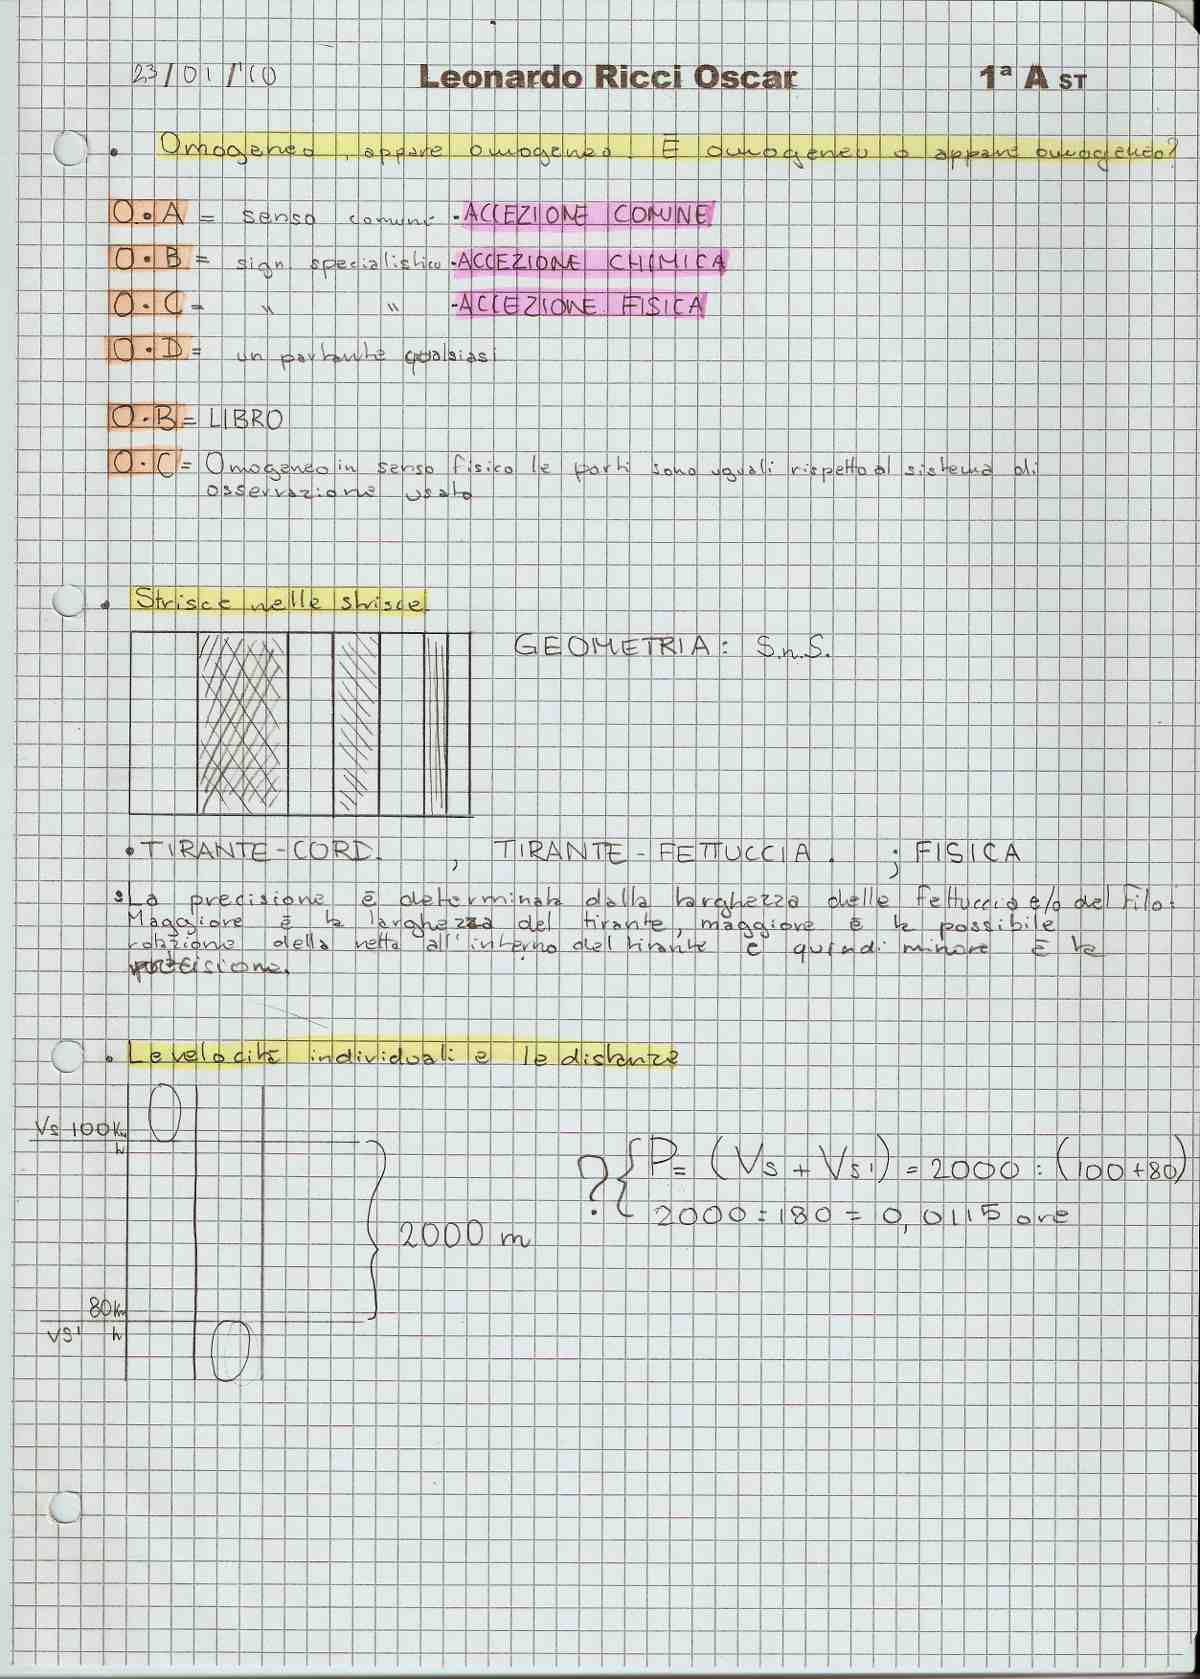 23/01/'10 Leonardo Ricci Oscar 1ª A ST
• Omogeneo, appare omogeneo. È omogeneo o appare omogeneo?
O.A = senso comune -ACCEZIONE COMUNE
O.B = sign. specialistico -ACCEZIONE CHIMICA
O.C = " " -ACCEZIONE FISICA
O.D = un parlante qualsiasi
O.B = LIBRO
O.C = Omogeneo in senso fisico le parti sono uguali rispetto al sistema di
osservazione usato
• Strisce nelle strisce
GEOMETRIA: S.n.S.
• TIRANTE-CORD. , TIRANTE-FETTUCCIA. ; FISICA
La precisione è determinata dalla larghezza delle Fettuccia e/o del Filo:
Maggiore è la larghezza del tirante, maggiore è la possibile
rotazione della retta all'interno del tirante e quindi minore È la
precisione.
• Le velocità individuali e le distanze
Vs 100 Km
h
?{ P= (Vs + Vs') = 2000 : (100+80)
2000:180 = 0,0115 ore
2000 m
80 Km
Vs' h